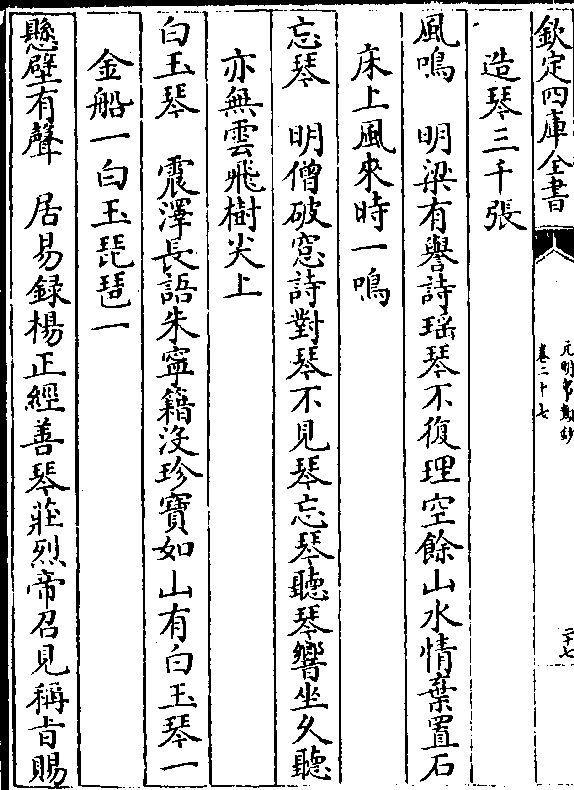 欽定四庫全書
元明事類鈔
卷二十七
二十七
造琴三千張
風鳴　明梁有譽詩瑶琴不復理空餘山水情棄置石
床上風來時一鳴
忘琴　明僧破窓詩對琴不見琴忘琴聽琴響坐久聽
亦無雲飛樹尖上
白玉琴　震澤長語朱寧籍没珍寶如山有白玉琴一
金船一白玉琵琶一
懸壁有聲　居易録楊正經善琴莊烈帝召見稱旨賜